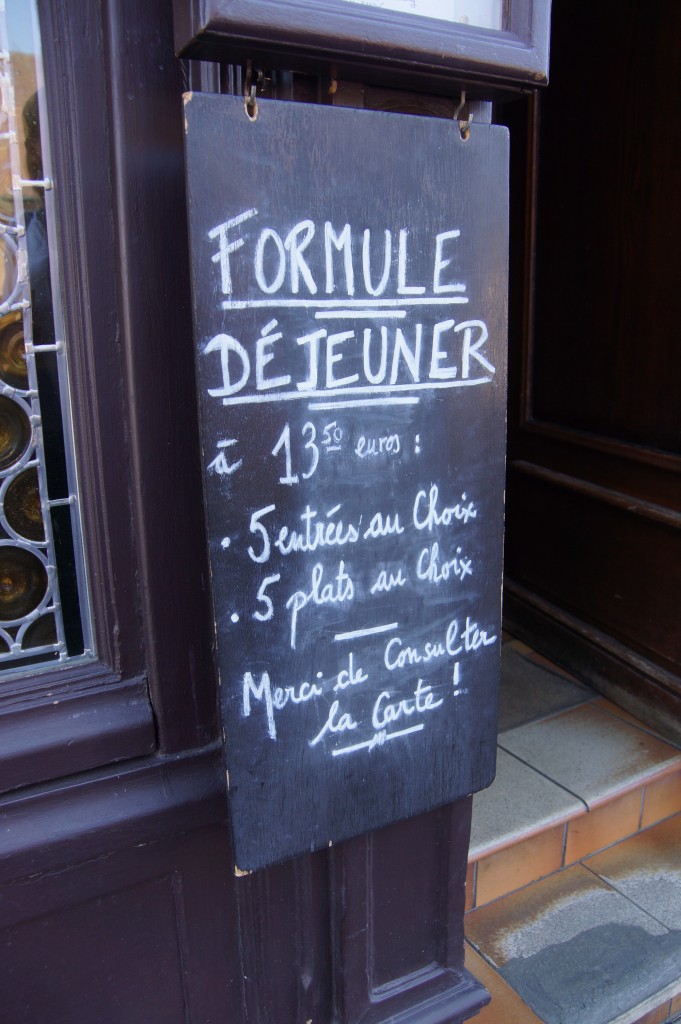 FORMULE
DÉJEUNER
à 13⁵⁰ euros :
• 5 entrées au Choix
• 5 plats au Choix
Merci de Consulter
la Carte !